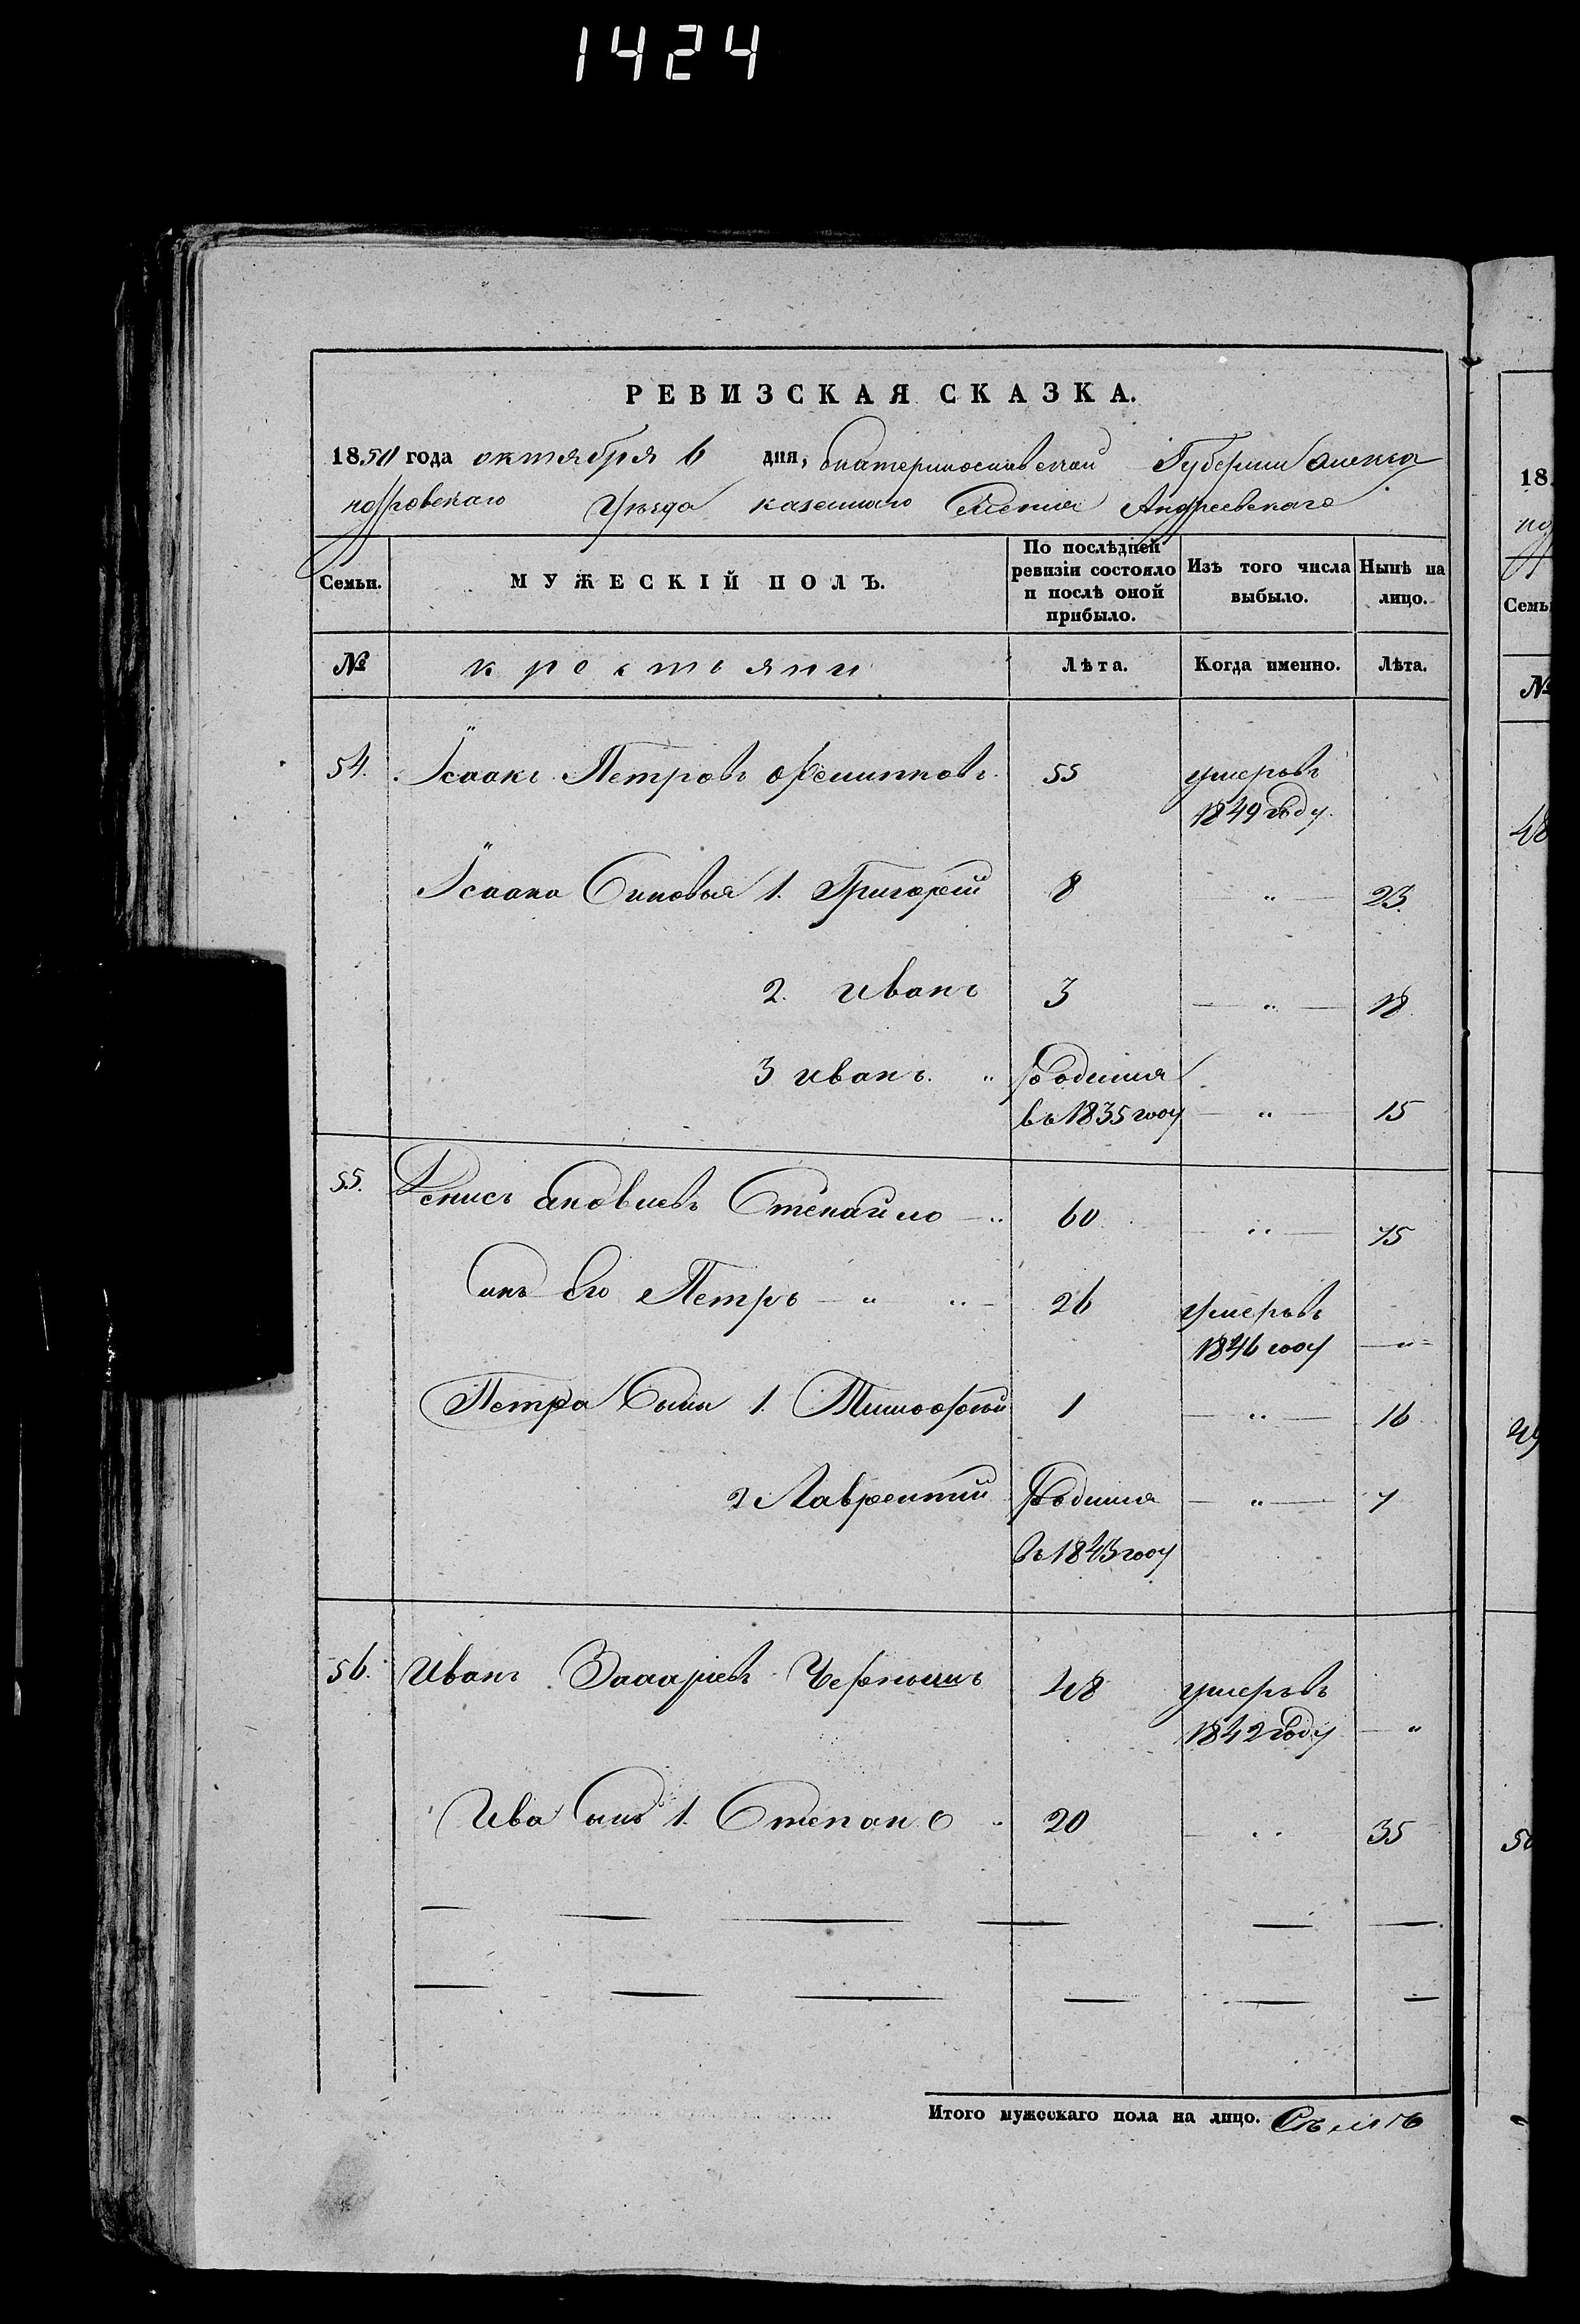 1424
РЕВИЗСКАЯ СКАЗКА.
1850 года октября 6 дня, Екатеринославской Губернии Алекса
ндровскаго Уѣзда казеннаго Селения Андреевскаго
Семьи. МУЖЕСКІЙ ПОЛЪ. По послѣдней ревизіи состояло и послѣ оной прибыло. Изъ того числа выбыло. Нынѣ на лицо.
№ крестьяни Лѣта. Когда именно. Лѣта.
54. Ісаакъ Петровъ 55 умеръ въ
1849 году.
Ісаака Синовья 1. Григорей 8 — " — 23.
2. Иванъ 3 — " — 18
3 Иванъ. " Родился
въ 1835 году — " — 15
55. Денисъ Яковлевъ Степайло — " 60 — " — 75
Синъ Его Петръ — " " — 26 Умеръ въ
1846 году — " —
Петра Сыны 1. Тимофей 1 — " — 16
2 Лаврентий Родился — " — 7
въ 1843 году
56. Иванъ Захаріевъ 48 умеръ въ
1842 году — "
Ива Синъ 1. Степанъ " 20 — " 35
Итого мужескаго пола на лицо. Семь
18
№
Семь
48
49
50